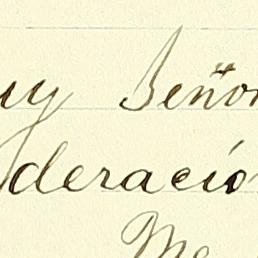 uy Señor
deració
Me